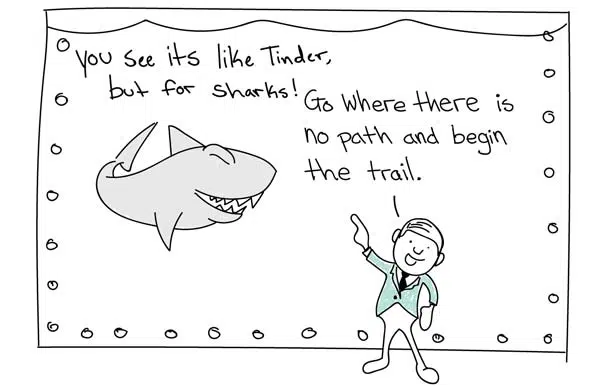 you see its like Tinder,
but for sharks!
Go where there is
no path and begin
the trail.